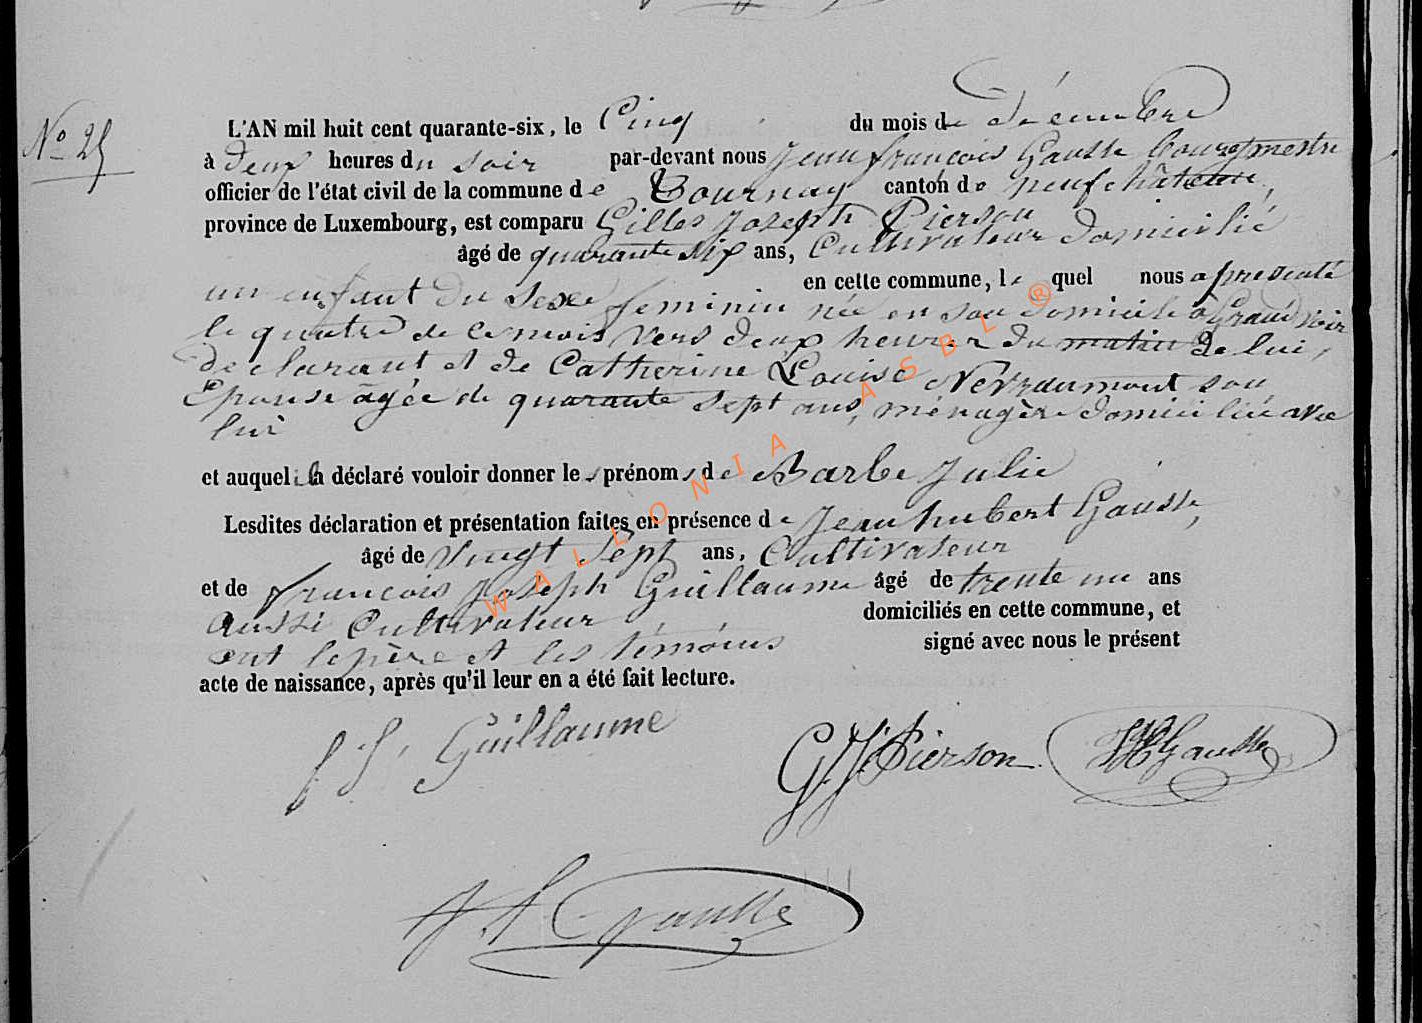 No 25
L'AN mil huit cent quarante-six, le Cinq du mois de décembre
à deux heures du soir par-devant nous Jean françois Gausse bourgmestre
officier de l'état civil de la commune de Tournay canton de neufchateau,
province de Luxembourg, est comparu Gilles Joseph Pierson
âgé de quarante six ans, Cultivateur domicilié
en cette commune, lequel nous a présenté
un enfant du sexe feminin née en son domicile à Grandvoir
le quatre de ce mois vers deux heures du matin de lui,
declarant et de Catherine Louise Nevraumont son
Epouse agée de quarante sept ans, ménagère domiciliée avec
lui
et auquel il a déclaré vouloir donner les prénoms de Barbe Julie
Lesdites déclaration et présentation faites en présence de Jean hubert Gausse,
âgé de vingt sept ans, Cultivateur
et de françois Joseph Guillaume âgé de trente un ans
aussi Cultivateur domiciliés en cette commune, et
ont le père et les témoins signé avec nous le présent
acte de naissance, après qu'il leur en a été fait lecture.
f. J. Guillaume G. J. Pierson JH Gausse
J f Gausse
WALLONIA ASBL ®